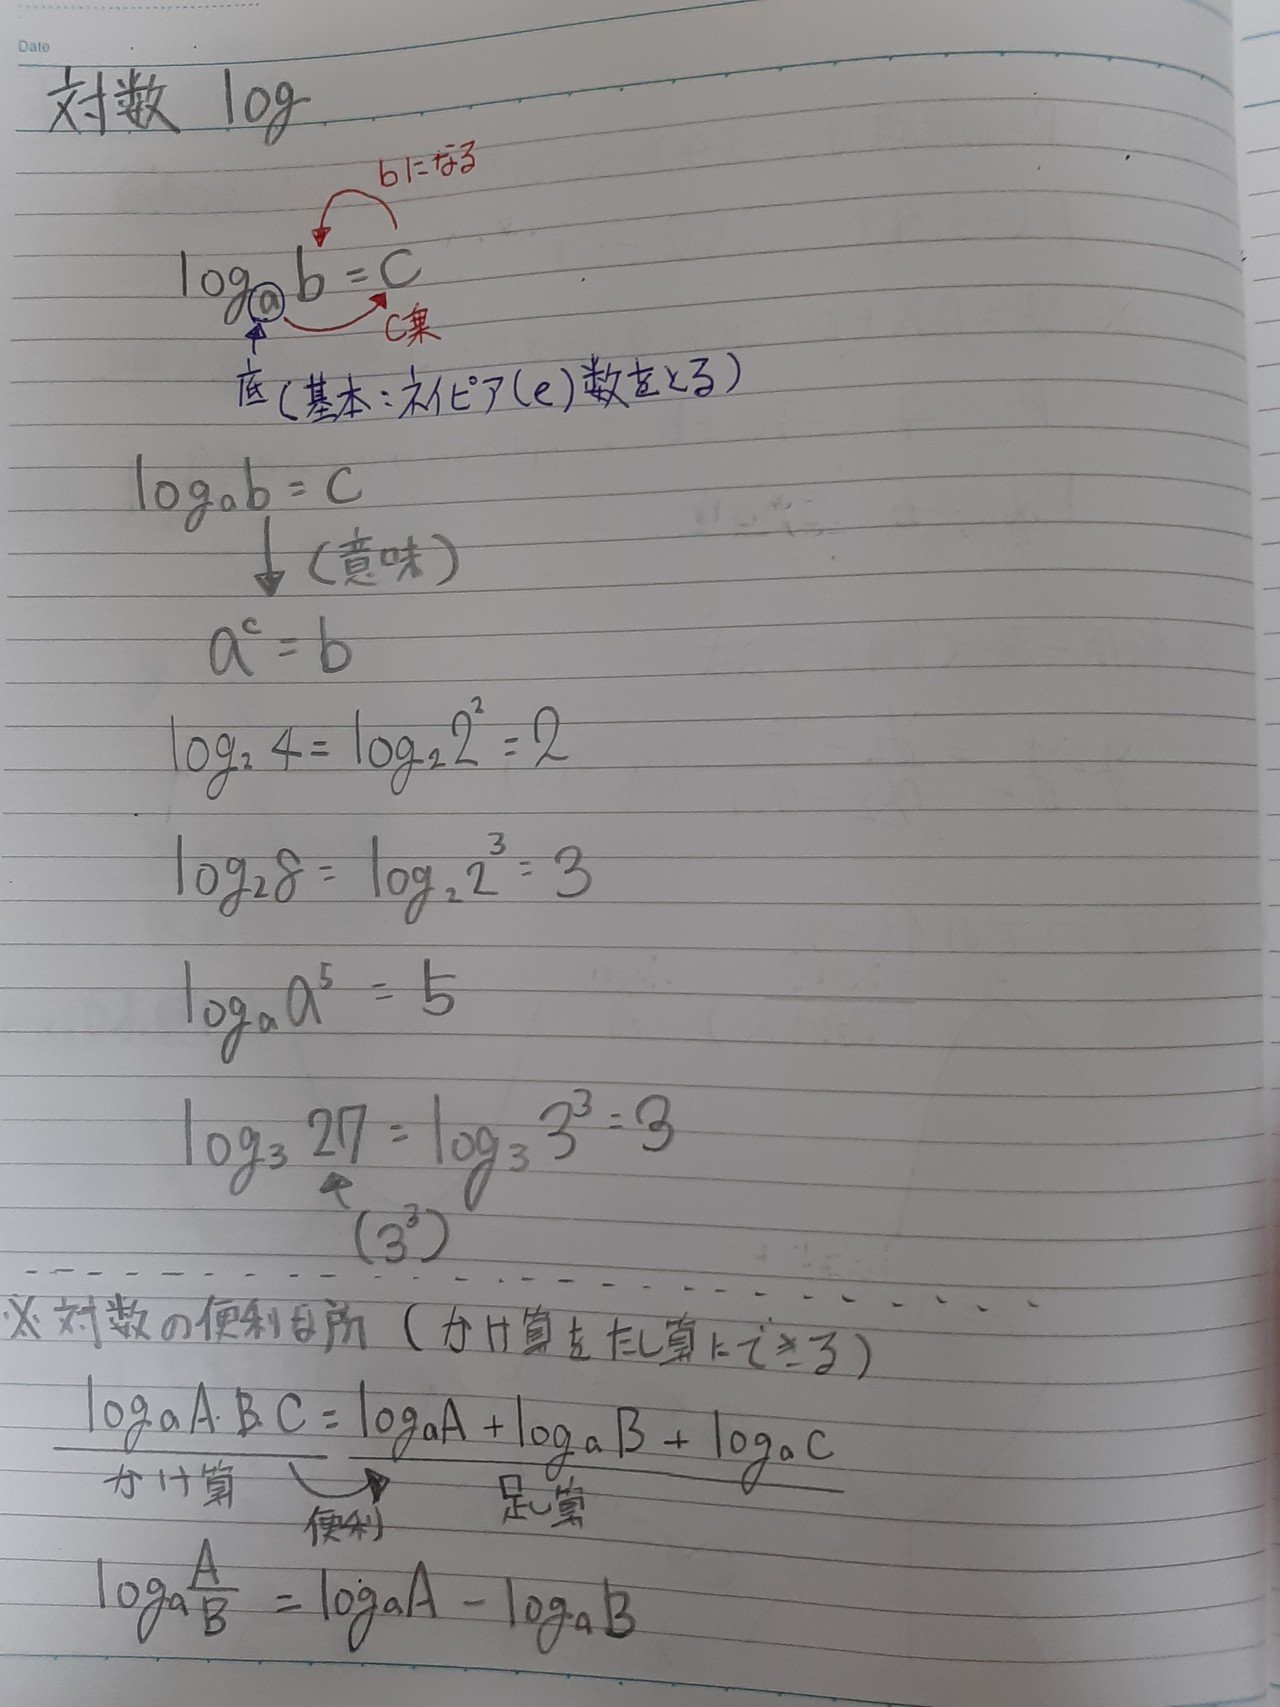 Date
対数 log
bになる
logₐ b = C
C乗
底(基本:ネイピア(e)数をとる)
logₐb = C
(意味)
aᶜ = b
log₂ 4 = log₂ 2² = 2
log₂ 8 = log₂ 2³ = 3
logₐ a⁵ = 5
log₃ 27 = log₃ 3³ = 3
(3³)
※対数の便利な所(かけ算をたし算にできる)
logₐ A・B・C = logₐA + logₐB + logₐC
かけ算 便利 足し算
logₐ A/B = logₐA - logₐB